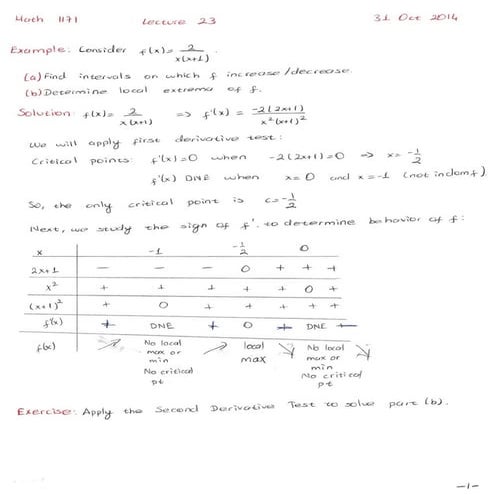 Math 1171 Lecture 23 31 Oct 2014
Example: Consider f(x) = 2/x(x+1).
(a) Find intervals on which f increase/decrease.
(b) Determine local extrema of f.
Solution: f(x) = 2/x(x+1) ⇒ f'(x) = -2(2x+1)/x²(x+1)²
We will apply first derivative test:
Critical points: f'(x)=0 when -2(2x+1)=0 ⇒ x = -1/2
f'(x) DNE when x=0 and x=-1 (not in dom f).
So, the only critical point is c = -1/2
Next, we study the sign of f' to determine behavior of f:
x -1 -1/2 0
2x+1 - - - 0 + + +
x² + + + + + 0 +
(x+1)² + 0 + + + + +
f'(x) + DNE + 0 - DNE -
f(x) ↗ No local max or min No critical pt ↗ local max ↘ No local max or min No critical pt ↘
Exercise: Apply the Second Derivative Test to solve part (b).
-1-